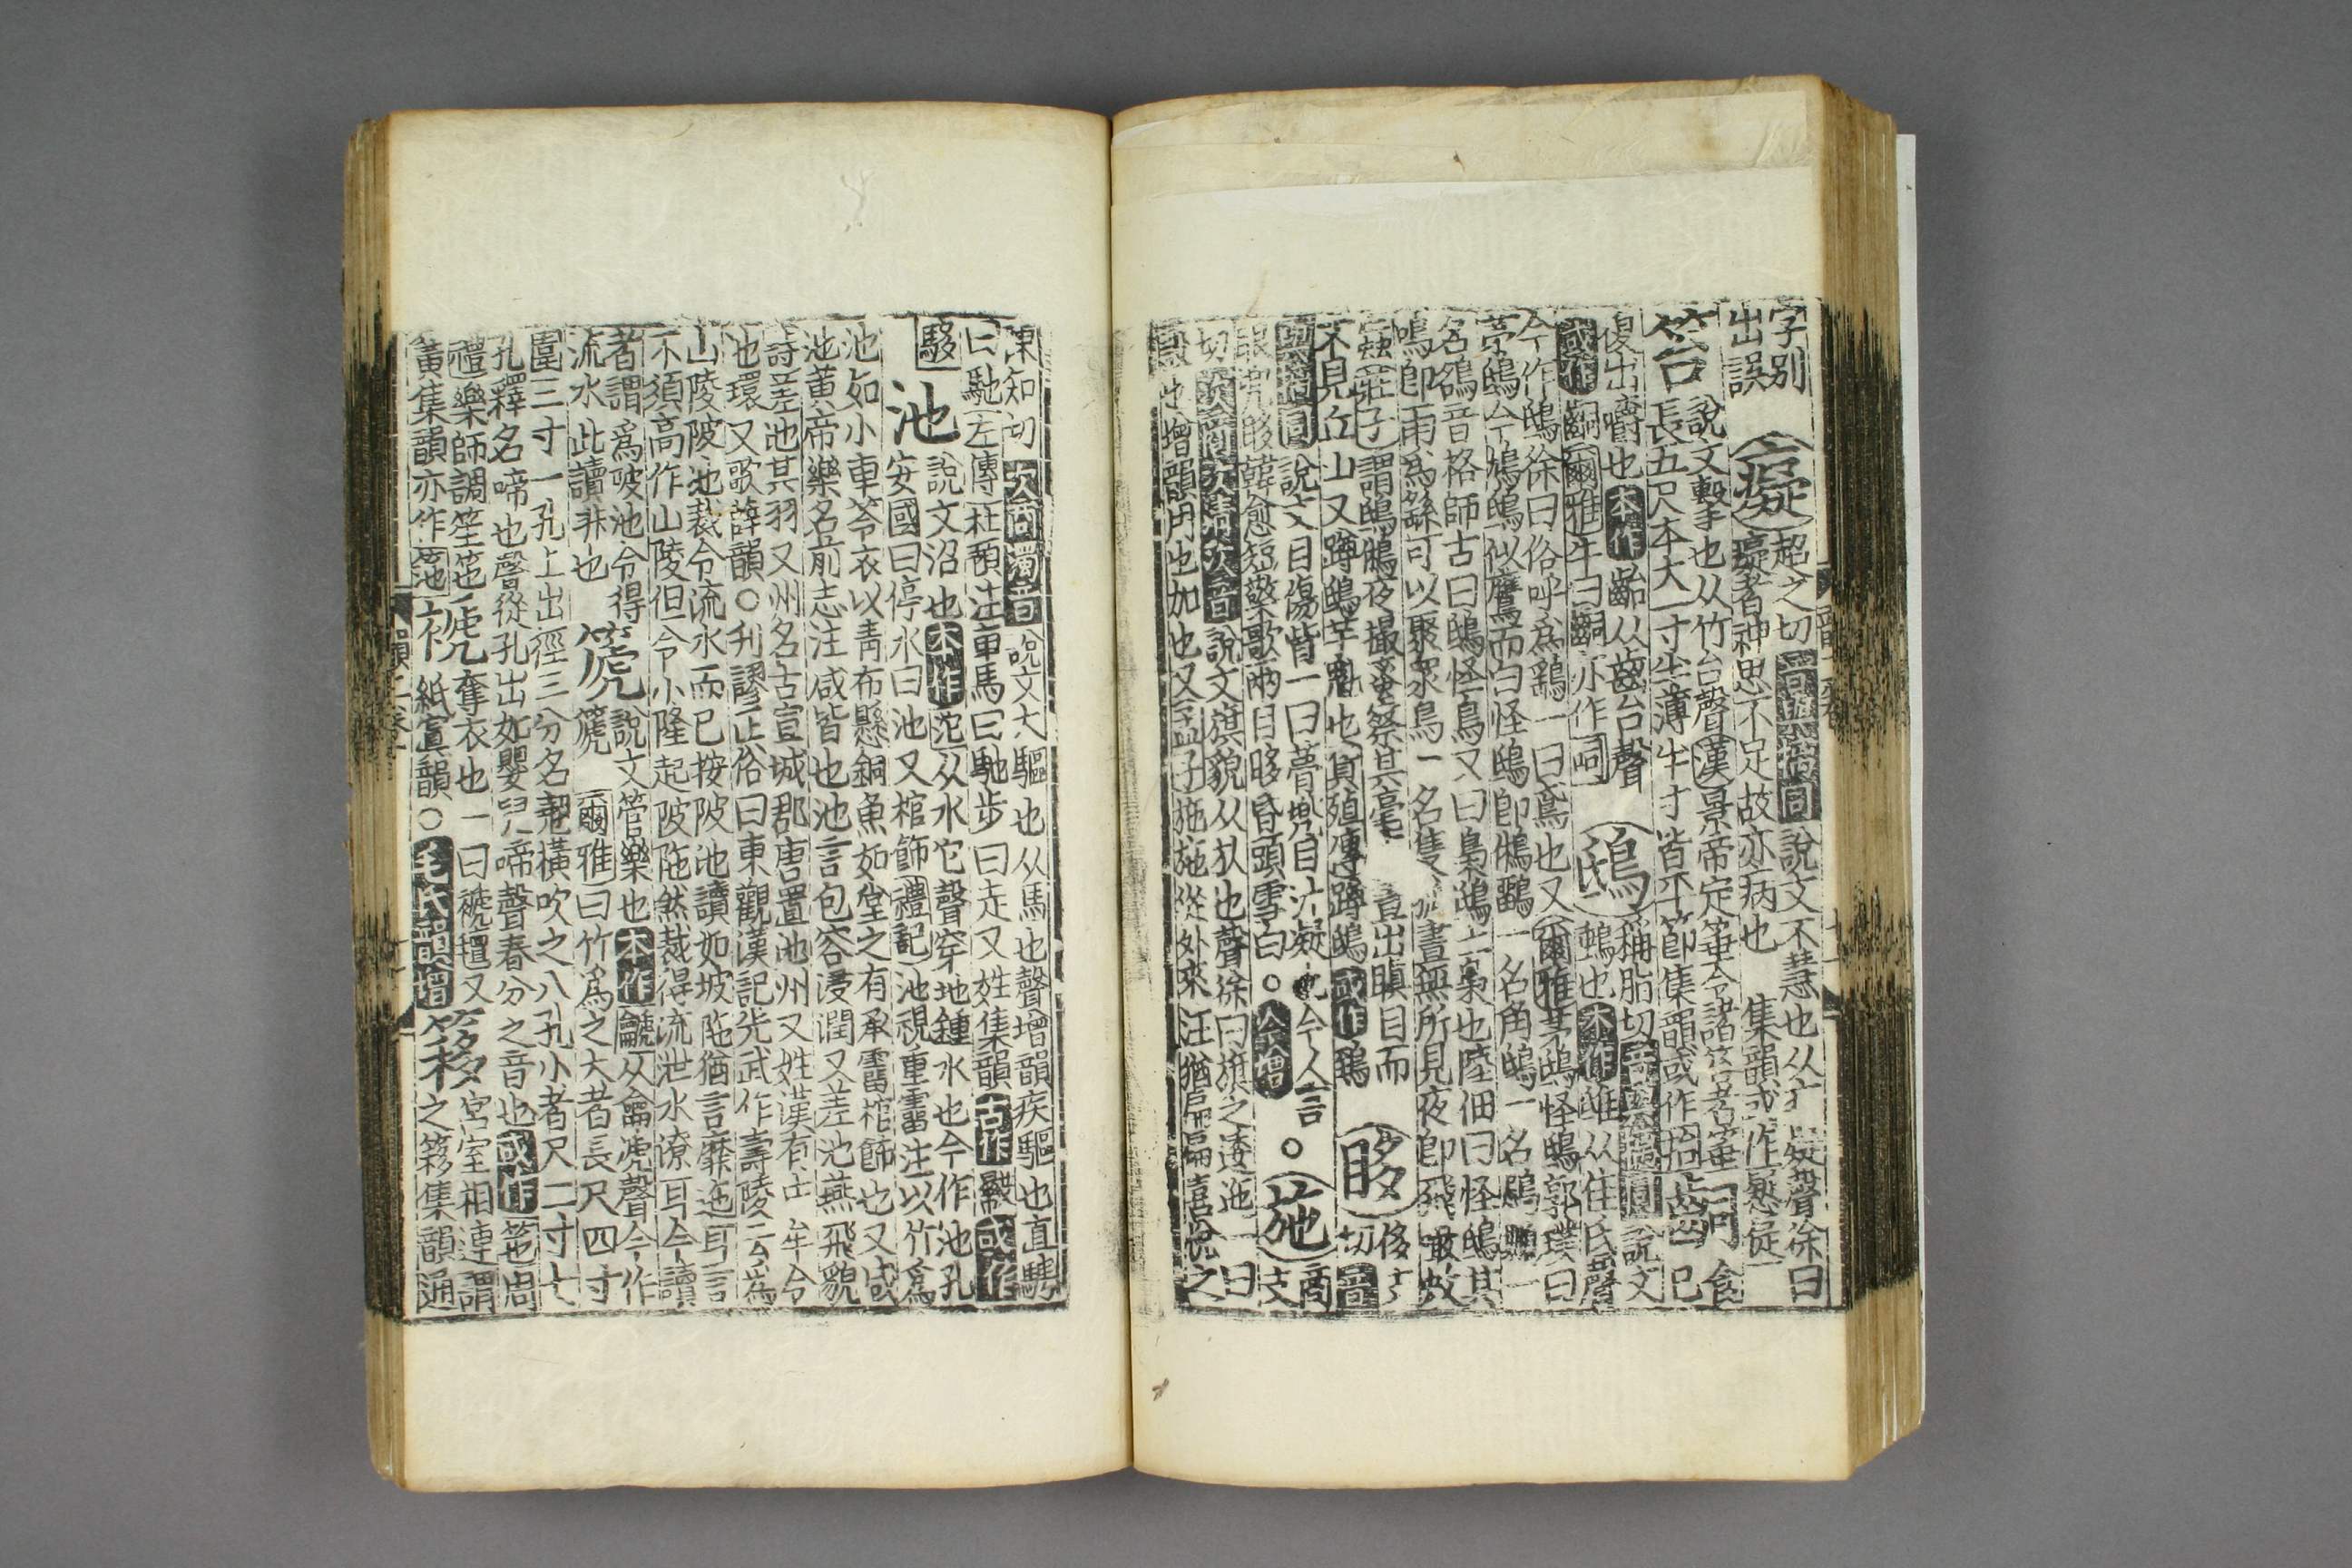 字別
出誤
癡
超之切音與笞同說文不慧也从疒疑聲徐曰
癡者神思不足故亦病也 集韻或作
笞
說文擊也从竹台聲漢景帝定箠令諸笞者箠
長五尺本大一寸竹薄半寸皆平節集韻或作
齝
食已
復出嚼也本作齝从齒台聲
或作齝爾雅牛曰齝亦作呞
鴟
稱脂切
說文
鴟也本作鴟从隹氐聲
今作鴟徐曰俗呼為鷂一曰鳶也又爾雅茅鴟怪鴟郭璞曰
茅鴟今鳩鴟似鷹而白怪鴟即鵂鶹一名角鴟一名
名鵅音格師古曰鴟怪鳥又曰梟鴟上梟也陸佃曰怪鴟其
鳴即雨為 可以聚眾鳥一名隻 晝無所見夜即飛啖蚊
莊子謂鴟鵂夜撮蚤察其毫 晝出瞋目而
不見丘山又蹲鴟芋魁也貨殖傳蹲鴟或作鴟
眵
侈
切音
說文目傷眥一曰瞢兜目汁凝 今人言
眼 眵韓愈短檠歌兩目眵昏頭雪白○今增○
葹
商
支
切次商次清次音說文旗貌从㫃也聲徐曰旗之逶迤一曰
也增韻用也加也又孟子施施從外來注猶扁扁喜悅之
陳知切次商濁音說文大驅也从馬也聲增韻疾驅也直騁
曰馳左傳杜預注車馬曰馳步曰走又姓集韻古作 或作
池
說文沼也本作沱从水它聲穿地鍾水也今作池孔
安國曰停水曰池又棺飾禮記池視重霤注以竹為
池如小車笭衣以青布懸銅魚如堂之有承霤棺飾也又咸
池黃帝樂名前志注咸皆也池言包容浸潤又差池燕飛貌
詩差池其羽又州名古宣城郡唐置池州又姓漢有 牟令
也環又歌薛韻○刊謬正俗曰東觀漢記光武作壽陵云為
山陵陂池裁令流水而已按陂池讀如坡陁猶言靡迤耳言
不須高作山陵但令小隆起陂陁然裁得流泄水潦耳今讀
者謂為陂池令得
流水此讀非也
篪
說文管樂也本作䶵从龠虒聲今作
篪 爾雅曰竹為之大者長尺四寸
圍三寸一孔上出徑三分名翹橫吹之八孔小者尺二寸七
孔釋名啼也聲從孔出如嬰兒啼聲春分之音也或作竾周
禮樂師調笙竾
黃集韻亦作
褫
奪衣也一曰褫氊又
紙寘韻○毛氏韻增
簃
宮室相連謂
之簃集韻通